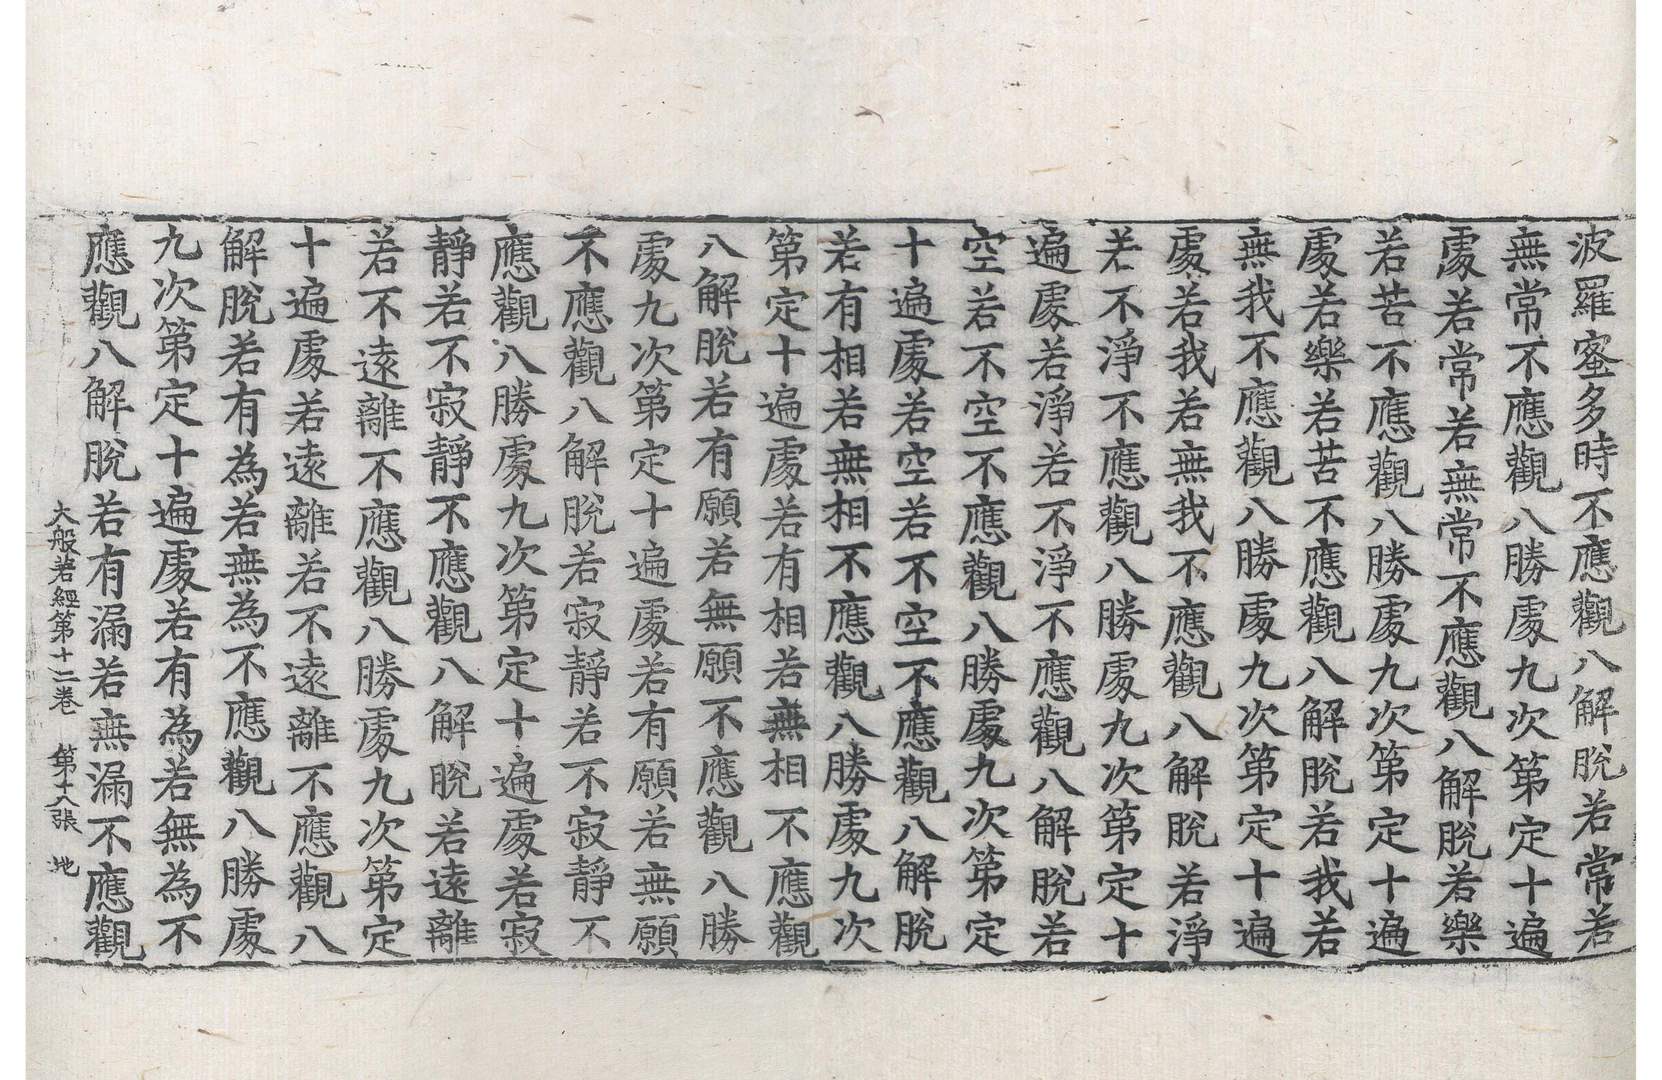 波羅蜜多時不應觀八解脫若常若
無常不應觀八勝處九次第定十遍
處若常若無常不應觀八解脫若樂
若苦不應觀八勝處九次第定十遍
處若樂若苦不應觀八解脫若我若
無我不應觀八勝處九次第定十遍
處若我若無我不應觀八解脫若淨
若不淨不應觀八勝處九次第定十
遍處若淨若不淨不應觀八解脫若
空若不空不應觀八勝處九次第定
十遍處若空若不空不應觀八解脫
若有相若無相不應觀八勝處九次
第定十遍處若有相若無相不應觀
八解脫若有願若無願不應觀八勝
處九次第定十遍處若有願若無願
不應觀八解脫若寂靜若不寂靜不
應觀八勝處九次第定十遍處若寂
靜若不寂靜不應觀八解脫若遠離
若不遠離不應觀八勝處九次第定
十遍處若遠離若不遠離不應觀八
解脫若有為若無為不應觀八勝處
九次第定十遍處若有為若無為不
應觀八解脫若有漏若無漏不應觀
大般若經第十二卷 第十八張 地